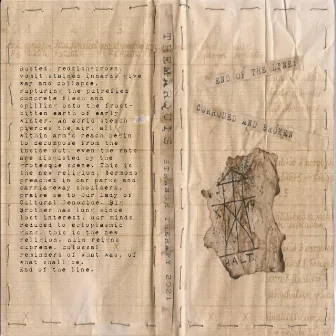 Rusted, reddish-brown,
vomit stained innards give
way and collapse,
rupturing the putrefied
concrete flesh and
spilling onto the frost-
bitten earth of early
winter. An acrid stench
pierces the air. All
within arm's reach begin
to decompose from the
inside out. Even the rats
are disgusted by the
grotesque scene. This is
the new religion. Sermons
preached in car parks and
carriageway shoulders.
Praise be to Our Lady of
Cultural Genocide. Big
Brother has long since
lost interest. Our minds
reduced to ectoplasmic
This is the new
religion.
supreme. Colossal
reminders of what was, of
what shall be.
End of the line.
2021
END OF THE LINE:
CORRODED AND BROKEN
HALT